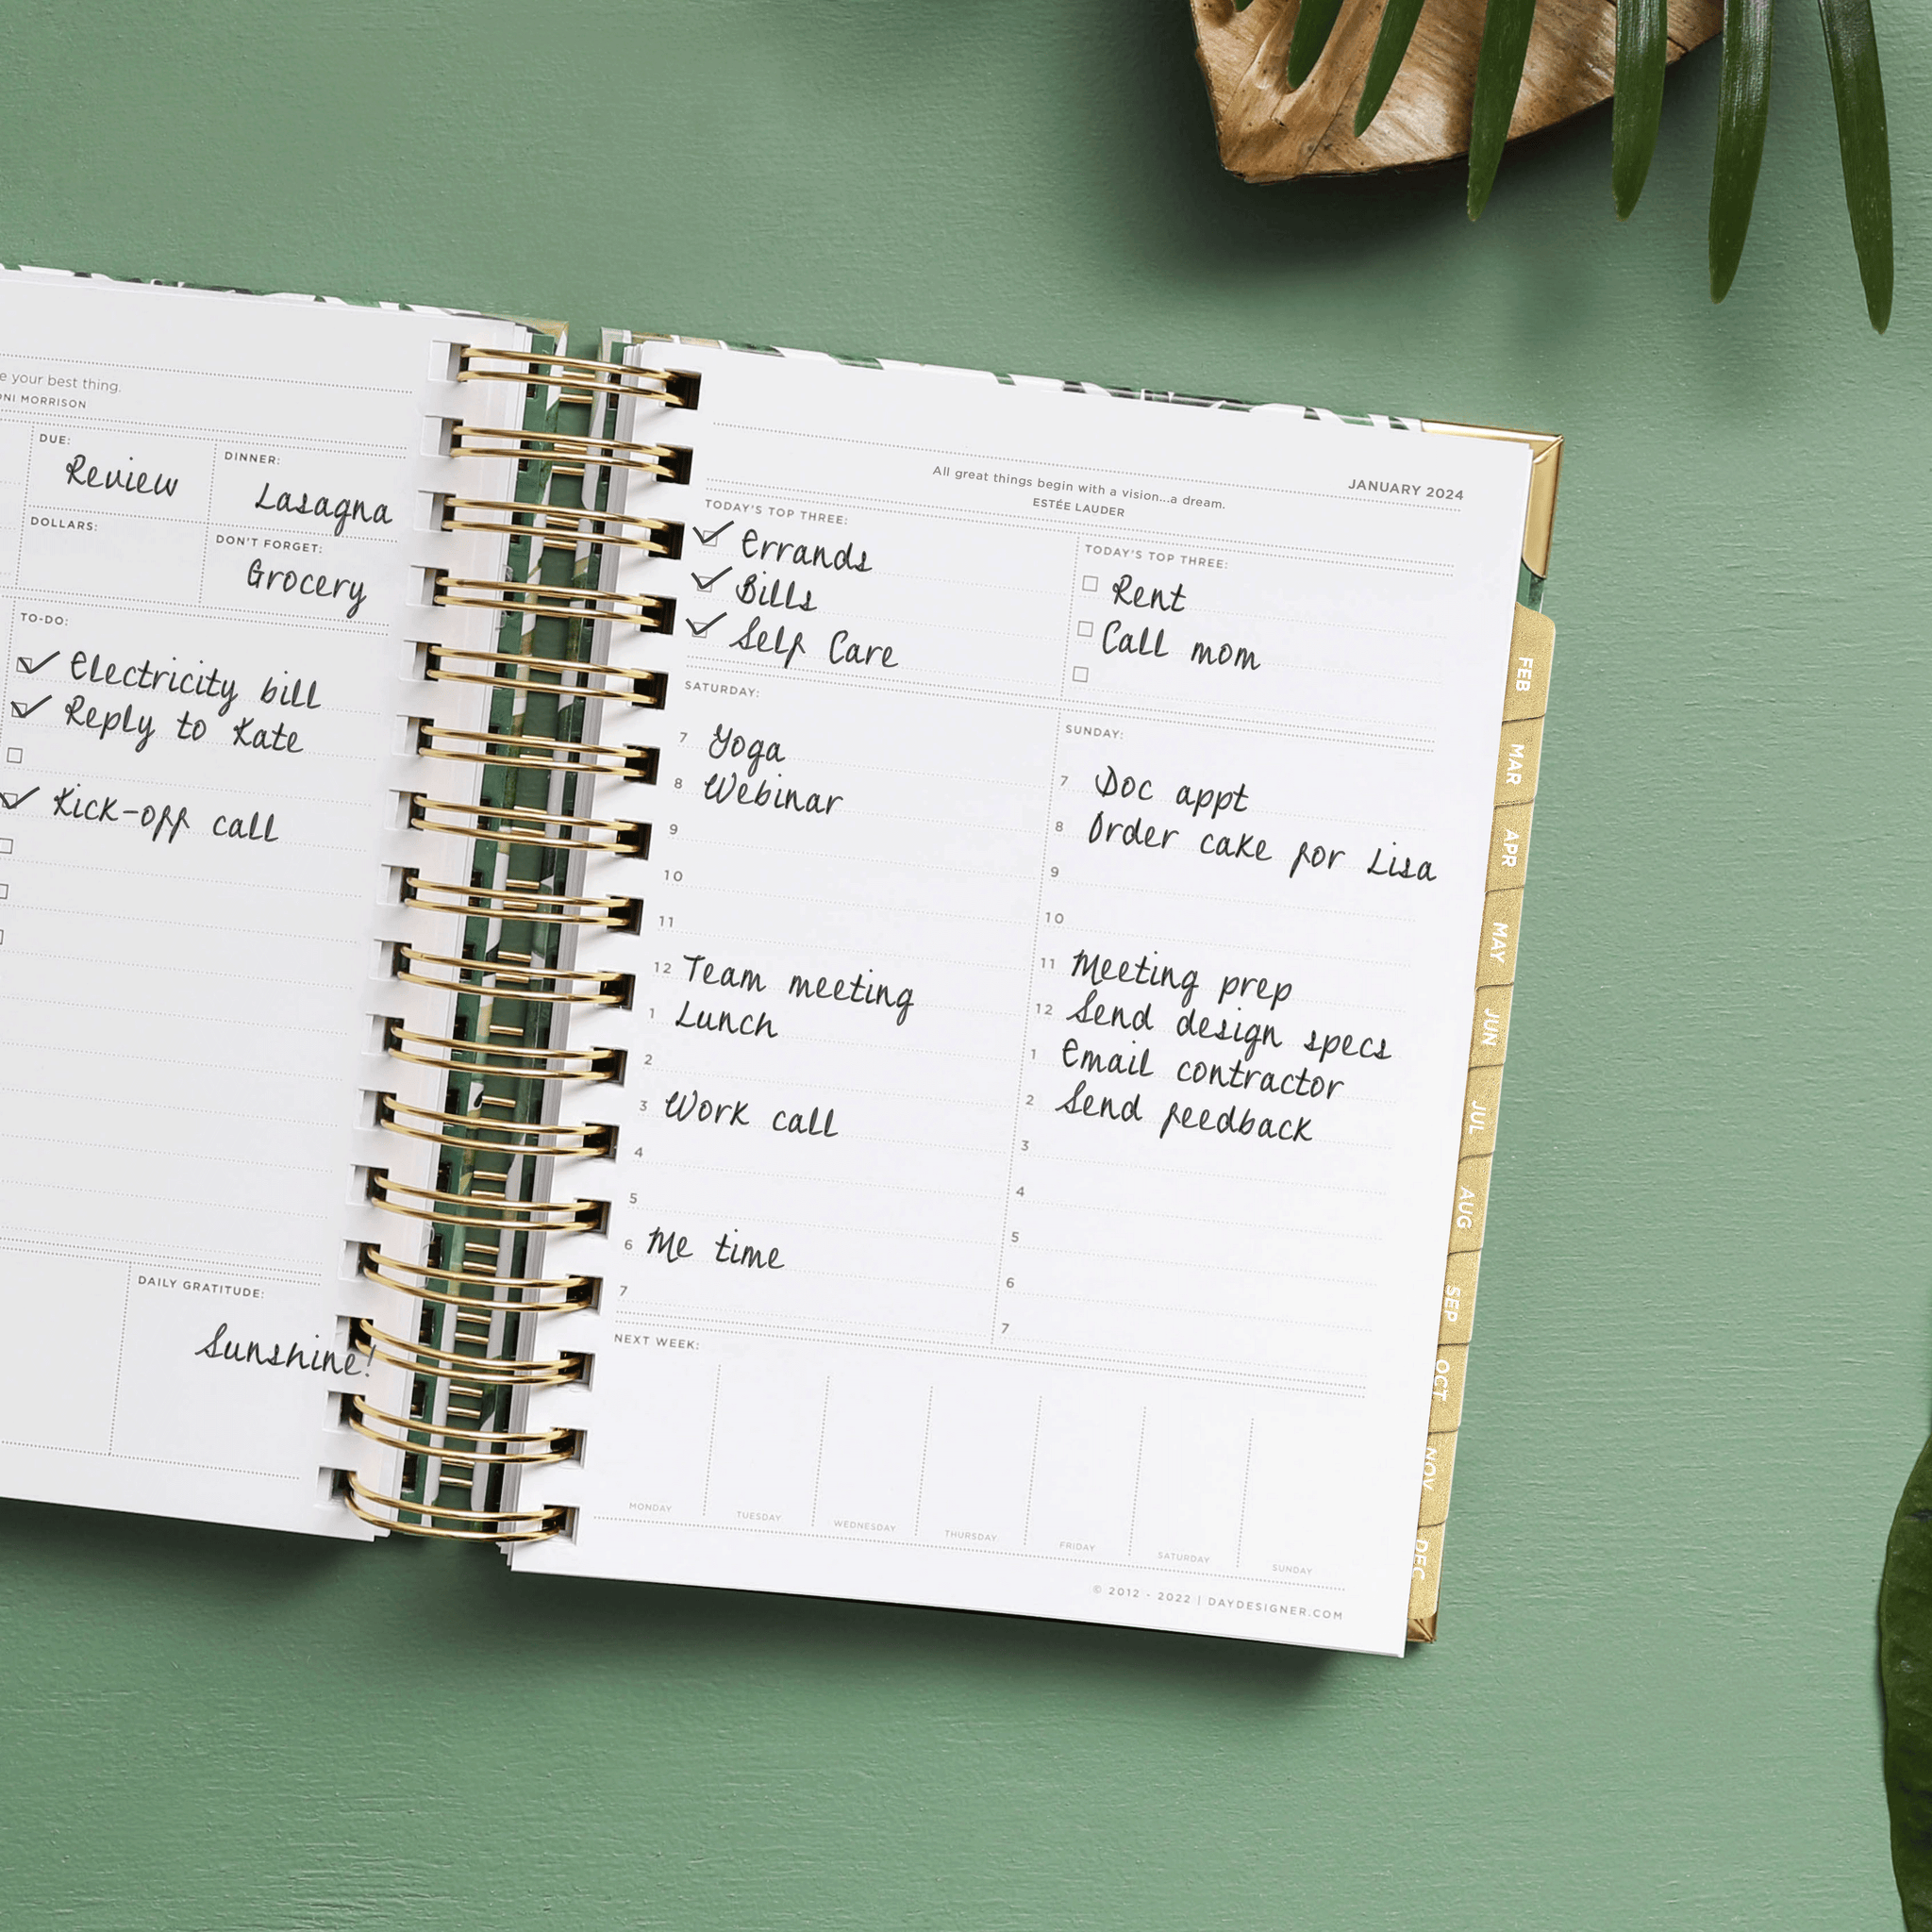 e your best thing.
ONI MORRISON
DUE:
Review
DINNER:
Lasagna
DOLLARS:
DON'T FORGET:
Grocery
TO-DO:
Electricity bill
Reply to Kate
Kick-off call
DAILY GRATITUDE:
Sunshine!
All great things begin with a vision...a dream.
ESTÉE LAUDER
JANUARY 2024
TODAY'S TOP THREE:
Errands
Bills
Self Care
TODAY'S TOP THREE:
Rent
Call mom
SATURDAY:
7 Yoga
8 Webinar
9
10
11
12 Team meeting
1 Lunch
2
3 Work call
4
5
6 Me time
7
SUNDAY:
7 Doc appt
8 Order cake for Lisa
9
10
11 Meeting prep
12 Send design specs
1 Email contractor
2 Send feedback
3
4
5
6
7
NEXT WEEK:
MONDAY
TUESDAY
WEDNESDAY
THURSDAY
FRIDAY
SATURDAY
SUNDAY
© 2012 - 2022 | DAYDESIGNER.COM
FEB
MAR
APR
MAY
JUN
JUL
AUG
SEP
OCT
NOV
DEC